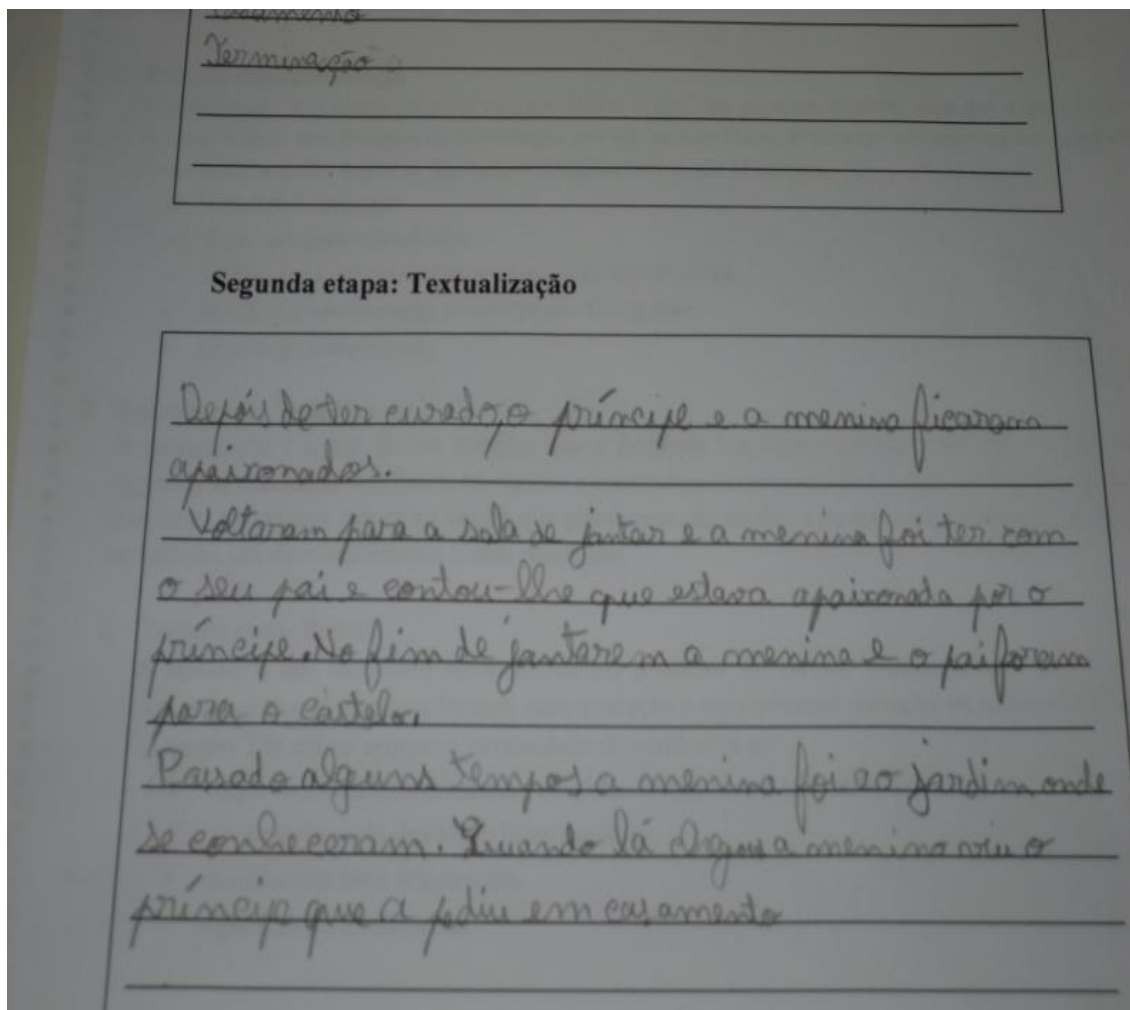 Terminação
Segunda etapa: Textualização
Depois de ter curado, o príncipe e a menina ficaram
apaixonados.
Voltaram para a sala de jantar e a menina foi ter com
o seu pai e contou-lhe que estava apaixonada por o
príncipe. No fim de jantarem a menina e o pai foram
para o castelo.
Passado alguns tempos a menina foi ao jardim onde
se conheceram. Quando lá chegou a menina viu o
príncip que a pediu em casamento